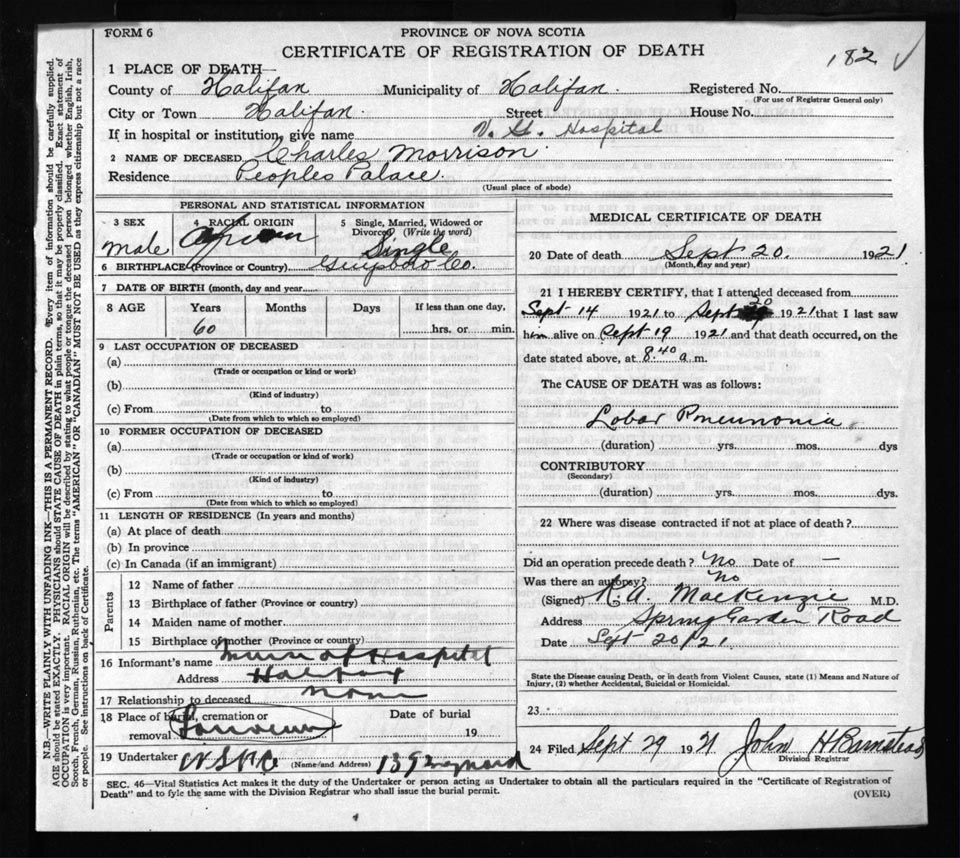 FORM 6
PROVINCE OF NOVA SCOTIA
CERTIFICATE OF REGISTRATION OF DEATH
182 ✓
1 PLACE OF DEATH—
County of Halifax Municipality of Halifax. Registered No.
(For use of Registrar General only)
City or Town Halifax. Street House No.
If in hospital or institution, give name V. G. Hospital
2 NAME OF DECEASED Charles Morrison.
Residence Peoples Palace.
(Usual place of abode)
PERSONAL AND STATISTICAL INFORMATION
3 SEX
Male
4 RACIAL ORIGIN
5 Single, Married, Widowed or
Divorced (Write the word)
Single
6 BIRTHPLACE (Province or Country) Guysboro Co.
7 DATE OF BIRTH (month, day and year)
8 AGE Years Months Days If less than one day,
60 hrs. or min.
9 LAST OCCUPATION OF DECEASED
(a)
(Trade or occupation or kind or work)
(b)
(Kind of industry)
(c) From to
(Date from which to which so employed)
10 FORMER OCCUPATION OF DECEASED
(a)
(Trade or occupation or kind of work)
(b)
(Kind of industry)
(c) From to
(Date from which to which so employed)
11 LENGTH OF RESIDENCE (In years and months)
(a) At place of death
(b) In province
(c) In Canada (if an immigrant)
Parents
12 Name of father
13 Birthplace of father (Province or country)
14 Maiden name of mother
15 Birthplace of mother (Province or country)
16 Informant's name of Hospital
Address Halifax
17 Relationship to deceased none
18 Place of burial, cremation or
removal
Date of burial
19
19 Undertaker (Name and Address)
MEDICAL CERTIFICATE OF DEATH
20 Date of death Sept 20. 1921
(Month, day and year)
21 I HEREBY CERTIFY, that I attended deceased from
Sept 14 1921 to Sept 20 1921 that I last saw
him alive on Sept 19 1921 and that death occurred, on the
date stated above, at 8.40 a. m.
The CAUSE OF DEATH was as follows:
Lobar Pneumonia
(duration) yrs. mos. dys
CONTRIBUTORY
(Secondary)
(duration) yrs. mos. dys.
22 Where was disease contracted if not at place of death?
Did an operation precede death? No Date of —
Was there an autopsy? No
(Signed) K. A. MacKenzie M.D.
Address Spring Garden Road
Date Sept 20/21
State the Disease causing Death, or in death from Violent Causes, state (1) Means and Nature of
Injury, (2) whether Accidental, Suicidal or Homicidal.
23
24 Filed Sept 29 1921 John H Barnstead
Division Registrar
SEC. 46—Vital Statistics Act makes it the duty of the Undertaker or person acting as Undertaker to obtain all the particulars required in the "Certificate of Registration of
Death" and to fyle the same with the Division Registrar who shall issue the burial permit.
(OVER)
N.B.—WRITE PLAINLY WITH UNFADING INK—THIS IS A PERMANENT RECORD. Every item of information should be carefully supplied.
AGE should be stated EXACTLY. PHYSICIANS should STATE CAUSE OF DEATH in plain terms, so that it may be properly classified. Exact statement of
OCCUPATION is very important. RACIAL ORIGIN will be described by stating to what people or tongue the deceased person belonged whether English, Irish,
Scotch, French, German, Russian, Ruthenian, etc. The terms "AMERICAN" OR "CANADIAN" MUST NOT BE USED as they express citizenship but not a race
or people. See instructions on back of Certificate.